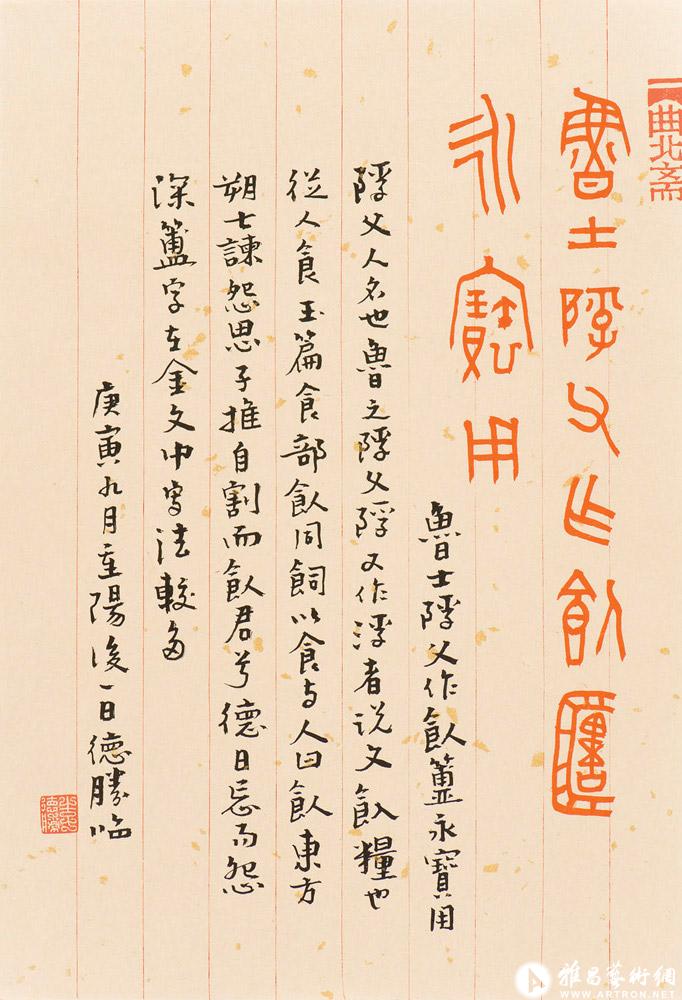 曲北斋
魯士䍤父作飤匿
永寶用
魯士䍤父作飤簠永寶用
䍤父人名也魯之䍤父䍤又作浮者说文飤糧也
從人食玉篇食部飤同飼以食与人曰飤東方
朔七諫怨思子推自割而飤君兮德日忘而怨
深簠字在金文中写法較多
庚寅九月重陽後一日德勝临
雅昌藝術網
WWW.ARTRON.NET